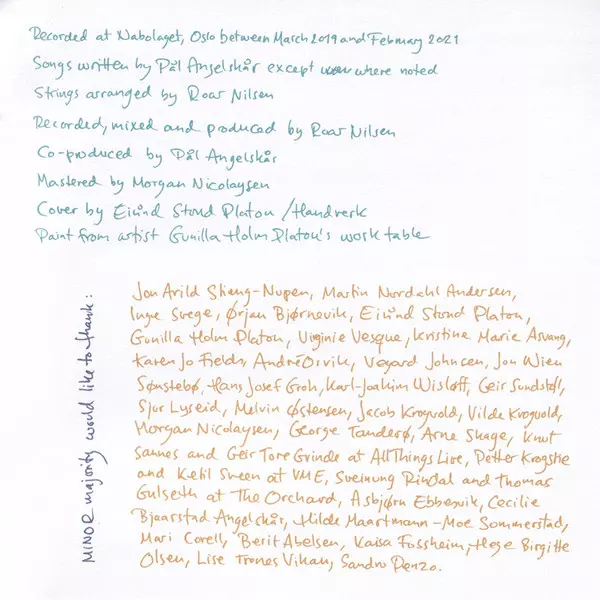 Recorded at Nabolaget, Oslo between March 2019 and February 2021
Songs written by Pål Angelskår except where noted
Strings arranged by Roar Nilsen
Recorded, mixed and produced by Roar Nilsen
Co-produced by Pål Angelskår
Mastered by Morgan Nicolaysen
Cover by Eivind Stoud Platou / Handverk
Paint from artist Gunilla Holm Platou's work table
MINOR majority would like to thank:
Jon Arild Stieng-Nupen, Martin Nordahl Andersen,
Inge Svege, Ørjan Bjørnevik, Eivind Stoud Platou,
Gunilla Holm Platou, Virginie Vesque, Kristine Marie Aasvang,
Karen Jo Fields, André Orvik, Vegard Johnsen, Jon Wien
Sønstebø, Hans Josef Groh, Karl-Joakim Wisløff, Geir Sundstøl,
Sjur Lyseid, Melvin Østensen, Jacob Krogvold, Vilde Krogvold,
Morgan Nicolaysen, George Tanderø, Arne Skage, Knut
Sannes and Geir Tore Grinde at All Things Live, Petter Krogstie
and Ketil Sveen at VME, Sveinung Rindal and Thomas
Gulseth at The Orchard, Asbjørn Ebbesvik, Cecilie
Bjaarstad Angelskår, Hilde Maartmann-Moe Sommerstad,
Mari Corell, Berit Abelsen, Kaisa Fossheim, Hege Birgitte
Olsen, Lise Trones Vikan, Sandro Penzo.